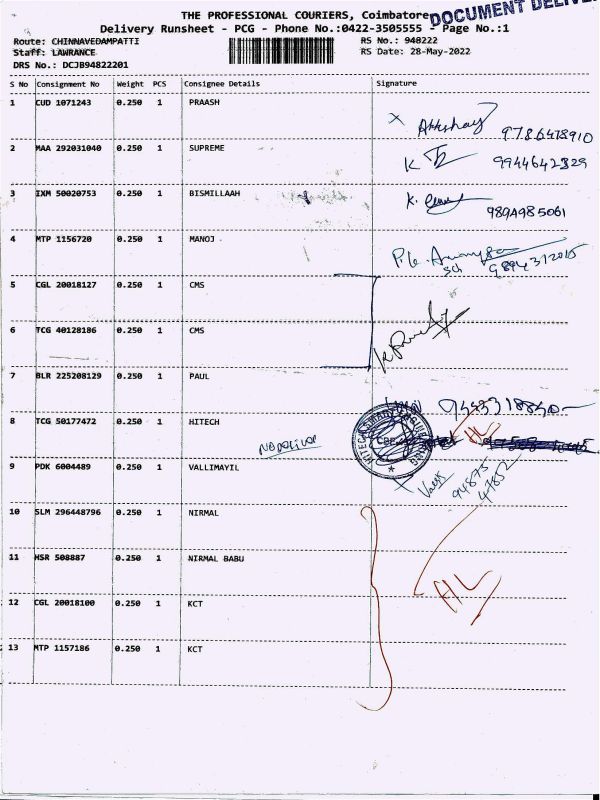 THE PROFESSIONAL COURIERS, Coimbatore
DOCUMENT DELIVE
Delivery Runsheet - PCG - Phone No.:0422-3505555 - Page No.:1
Route: CHINNAVEDAMPATTI RS No.: 940222
Staff: LAWRANCE RS Date: 28-May-2022
DRS No.: DCJB94822201
S No Consignment No Weight PCS Consignee Details Signature
1 CUD 1071243 0.250 1 PRAASH
X Akkshay 9786478910
2 MAA 292031040 0.250 1 SUPREME
K 9944642829
3 IXM 50020753 0.250 1 BISMILLAAH
K. 9894985061
4 MTP 1156720 0.250 1 MANOJ
9894312015
5 CGL 20018127 0.250 1 CMS
6 TCG 40128186 0.250 1 CMS
7 BLR 225208129 0.250 1 PAUL
9443318840
8 TCG 50177472 0.250 1 HITECH
9 PDK 6004489 0.250 1 VALLIMAYIL
94875
47852
10 SLM 296448796 0.250 1 NIRMAL
11 HSR 508887 0.250 1 NIRMAL BABU
12 CGL 20018100 0.250 1 KCT
13 MTP 1157186 0.250 1 KCT